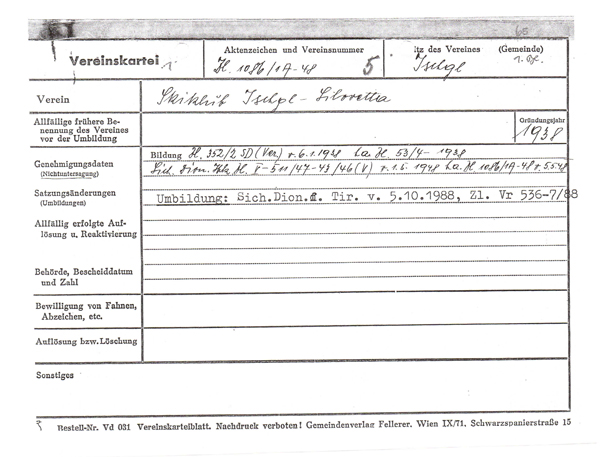 Vereinskartei
Aktenzeichen und Vereinsnummer
H. 1086/1A-48 5
itz des Vereines (Gemeinde)
Ischgl
Verein Skiklub Ischgl-Silvretta
Allfällige frühere Be-
nennung des Vereines
vor der Umbildung
Gründungsjahr
1938
Genehmigungsdaten
(Nichtuntersagung)
Bildung H. 352/2 SD (Ver.) v. 6.1.1938 La. H. 53/4-1938
Sich. Dion. H. I-511/47-43/46(V) v. 1.6.1948 La. H 1086/1A-48 v. 5.5.48
Satzungsänderungen
(Umbildungen)
Umbildung: Sich.Dion.f. Tir. v. 5.10.1988, Zl. Vr 536-7/88
Allfällig erfolgte Auf-
lösung u. Reaktivierung
Behörde, Bescheiddatum
und Zahl
Bewilligung von Fahnen,
Abzeichen, etc.
Auflösung bzw. Löschung
Sonstiges
Bestell-Nr. Vd 031 Vereinskarteiblatt. Nachdruck verboten! Gemeindenverlag Fellerer. Wien IX/71. Schwarzspanierstraße 15